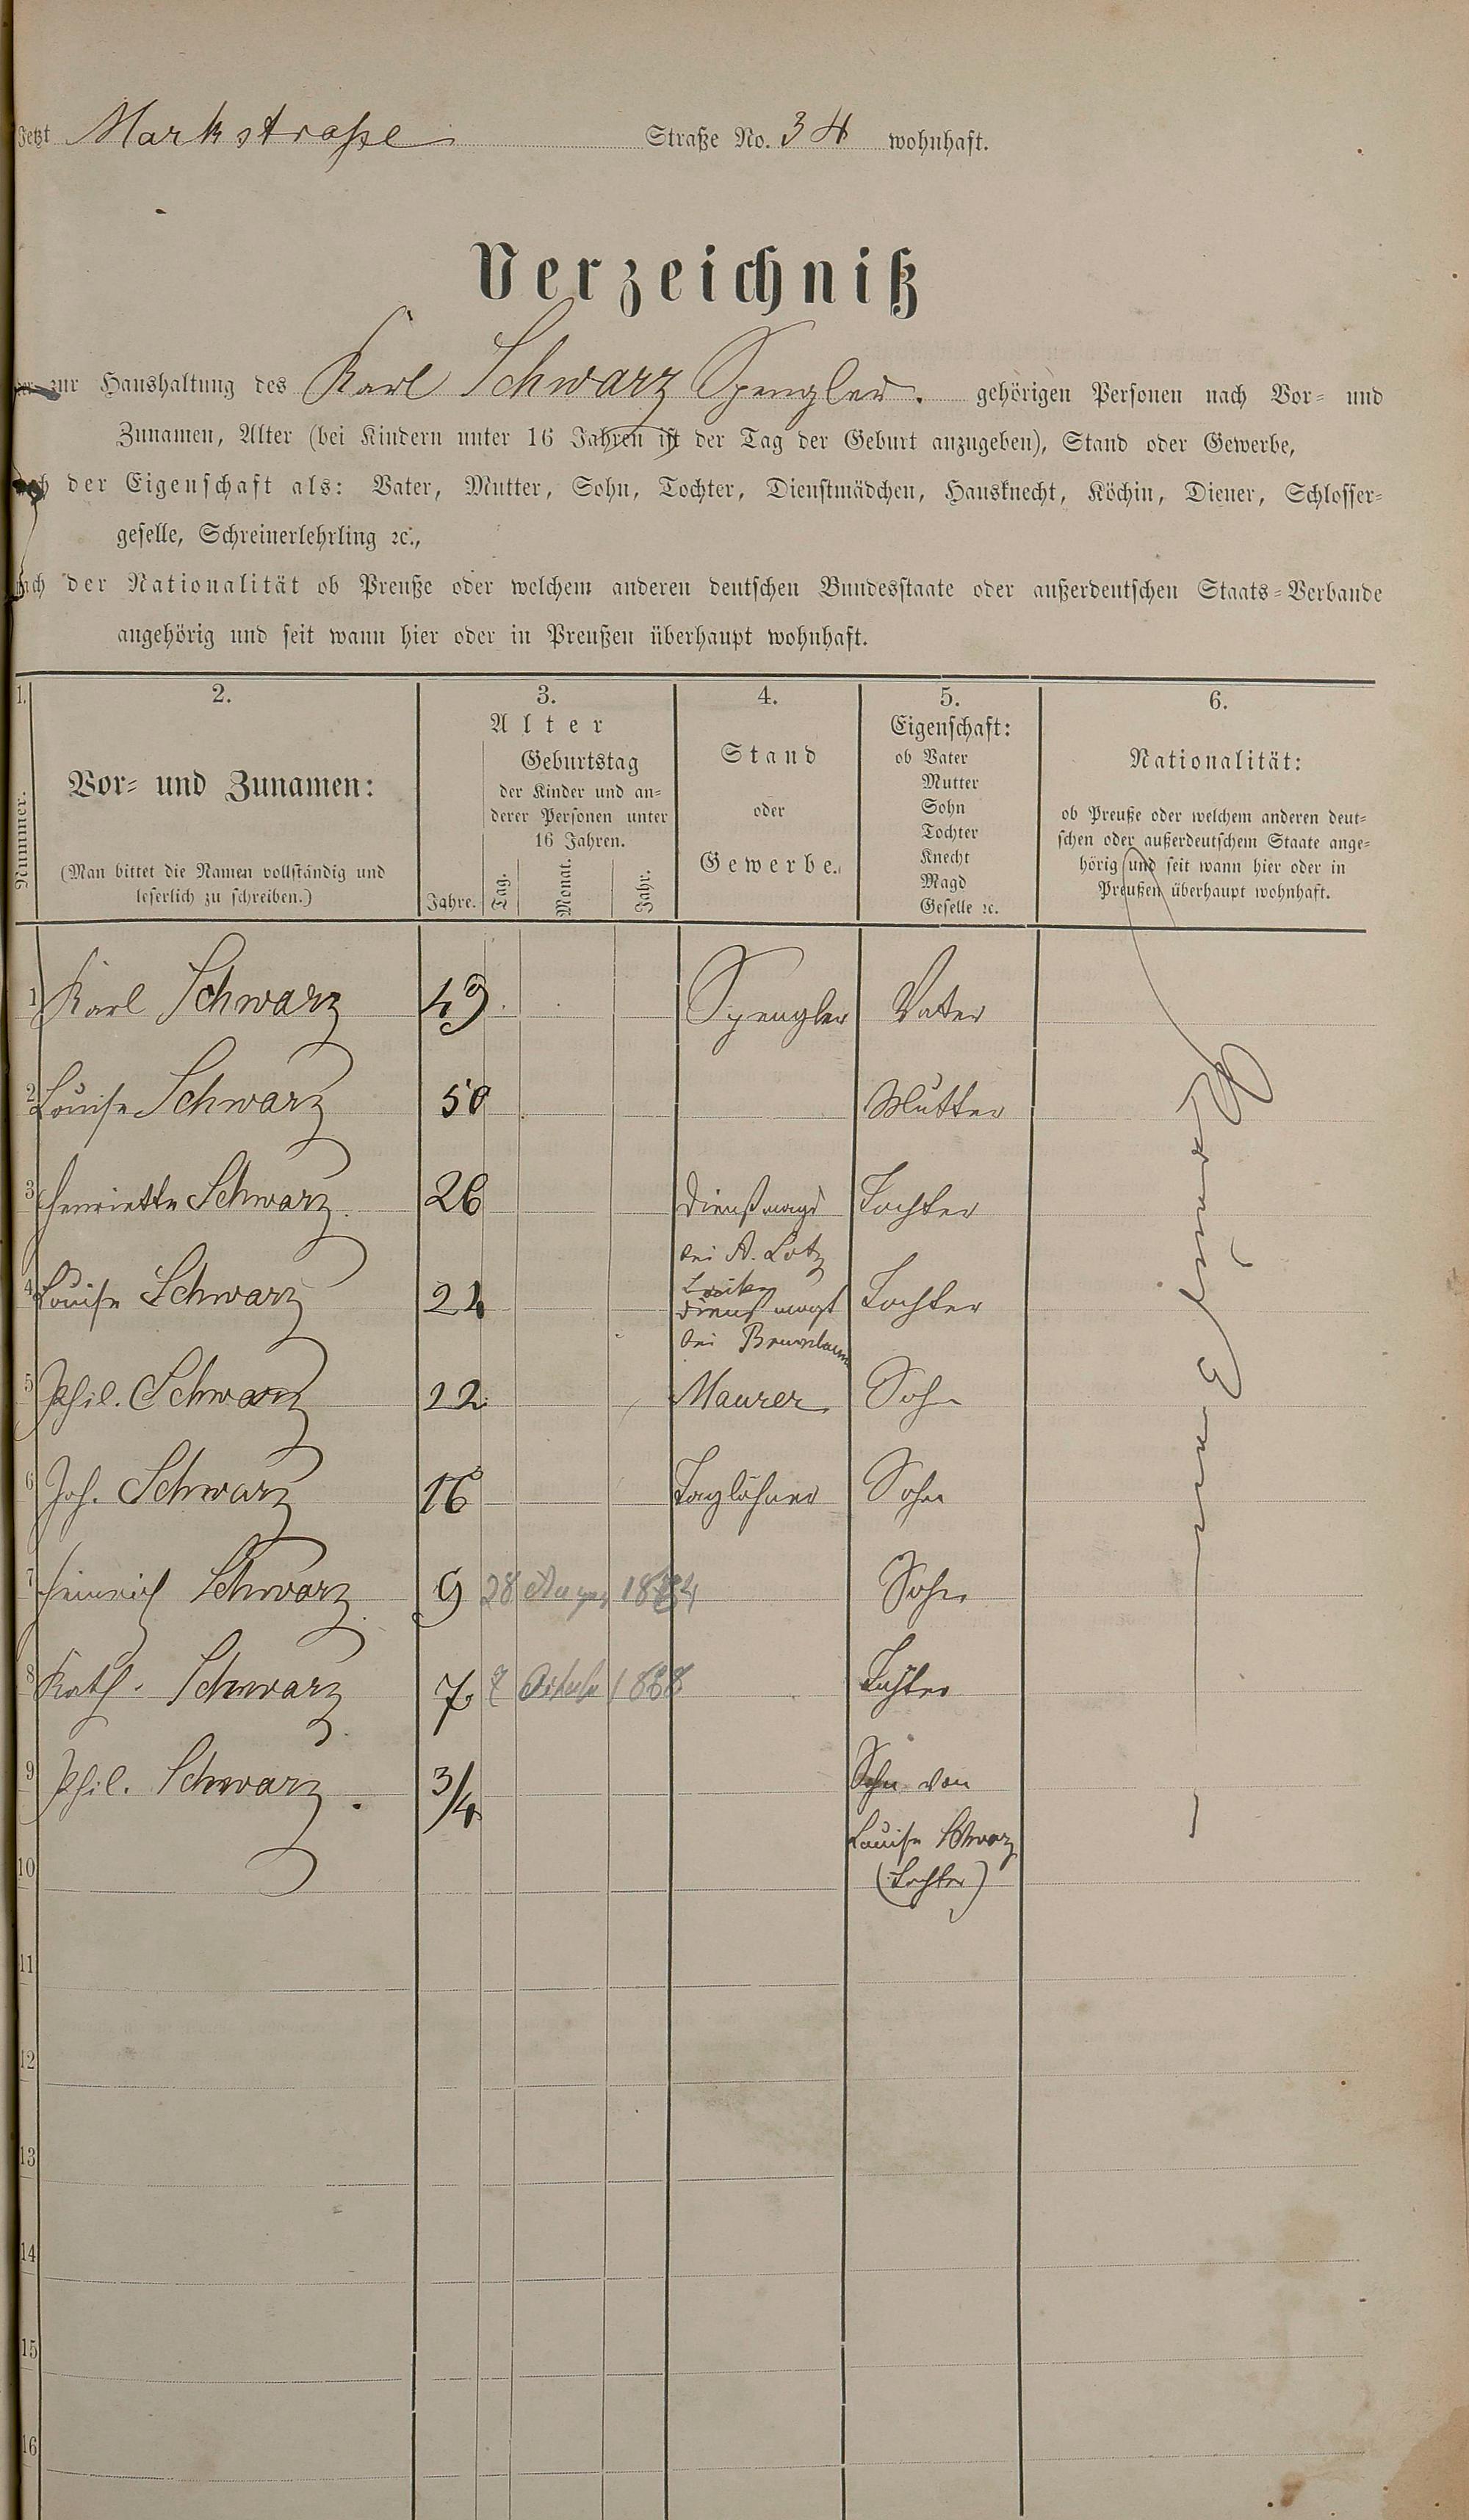 Jetzt Markstraße Straße No. 34 wohnhaft.
Verzeichniß
der zur Haushaltung des Karl Schwarz Spengler. gehörigen Personen nach Vor- und
Zunamen, Alter (bei Kindern unter 16 Jahren ist der Tag der Geburt anzugeben), Stand oder Gewerbe,
nach der Eigenschaft als: Vater, Mutter, Sohn, Tochter, Dienstmädchen, Hausknecht, Köchin, Diener, Schlosser-
geselle, Schreinerlehrling ꝛc.,
nach der Nationalität ob Preuße oder welchem anderen deutschen Bundesstaate oder außerdeutschen Staats-Verbande
angehörig und seit wann hier oder in Preußen überhaupt wohnhaft.
1. 2. 3. 4. 5. 6.
Nummer.
Vor- und Zunamen:
(Man bittet die Namen vollständig und
leserlich zu schreiben.)
Alter
Geburtstag
der Kinder und an-
derer Personen unter
16 Jahren.
Jahre. Tag. Monat. Jahr.
Stand
oder
Gewerbe.
Eigenschaft:
ob Vater
Mutter
Sohn
Tochter
Knecht
Magd
Geselle ꝛc.
Nationalität:
ob Preuße oder welchem anderen deut-
schen oder außerdeutschem Staate ange-
hörig und seit wann hier oder in
Preußen überhaupt wohnhaft.
1 Karl Schwarz 49 Spengler Vater
2 Louise Schwarz 50 Mutter
3 Henriette Schwarz 26 Dienstmagd Tochter
bei A. Lotz
4 Louise Schwarz 21 Dienstmagt Tochter
bei
5 Phil. Schwarz 22 Maurer Sohn
6 Joh. Schwarz 16 Taglöhner Sohn
7 Heinrich Schwarz 9 28 Sohn
8 Kath. Schwarz 7 7 Tochter
9 Phil. Schwarz. 3/4 Sohn von
Louise Schwarz
10 (Tochter)
11
12
13
14
15
16